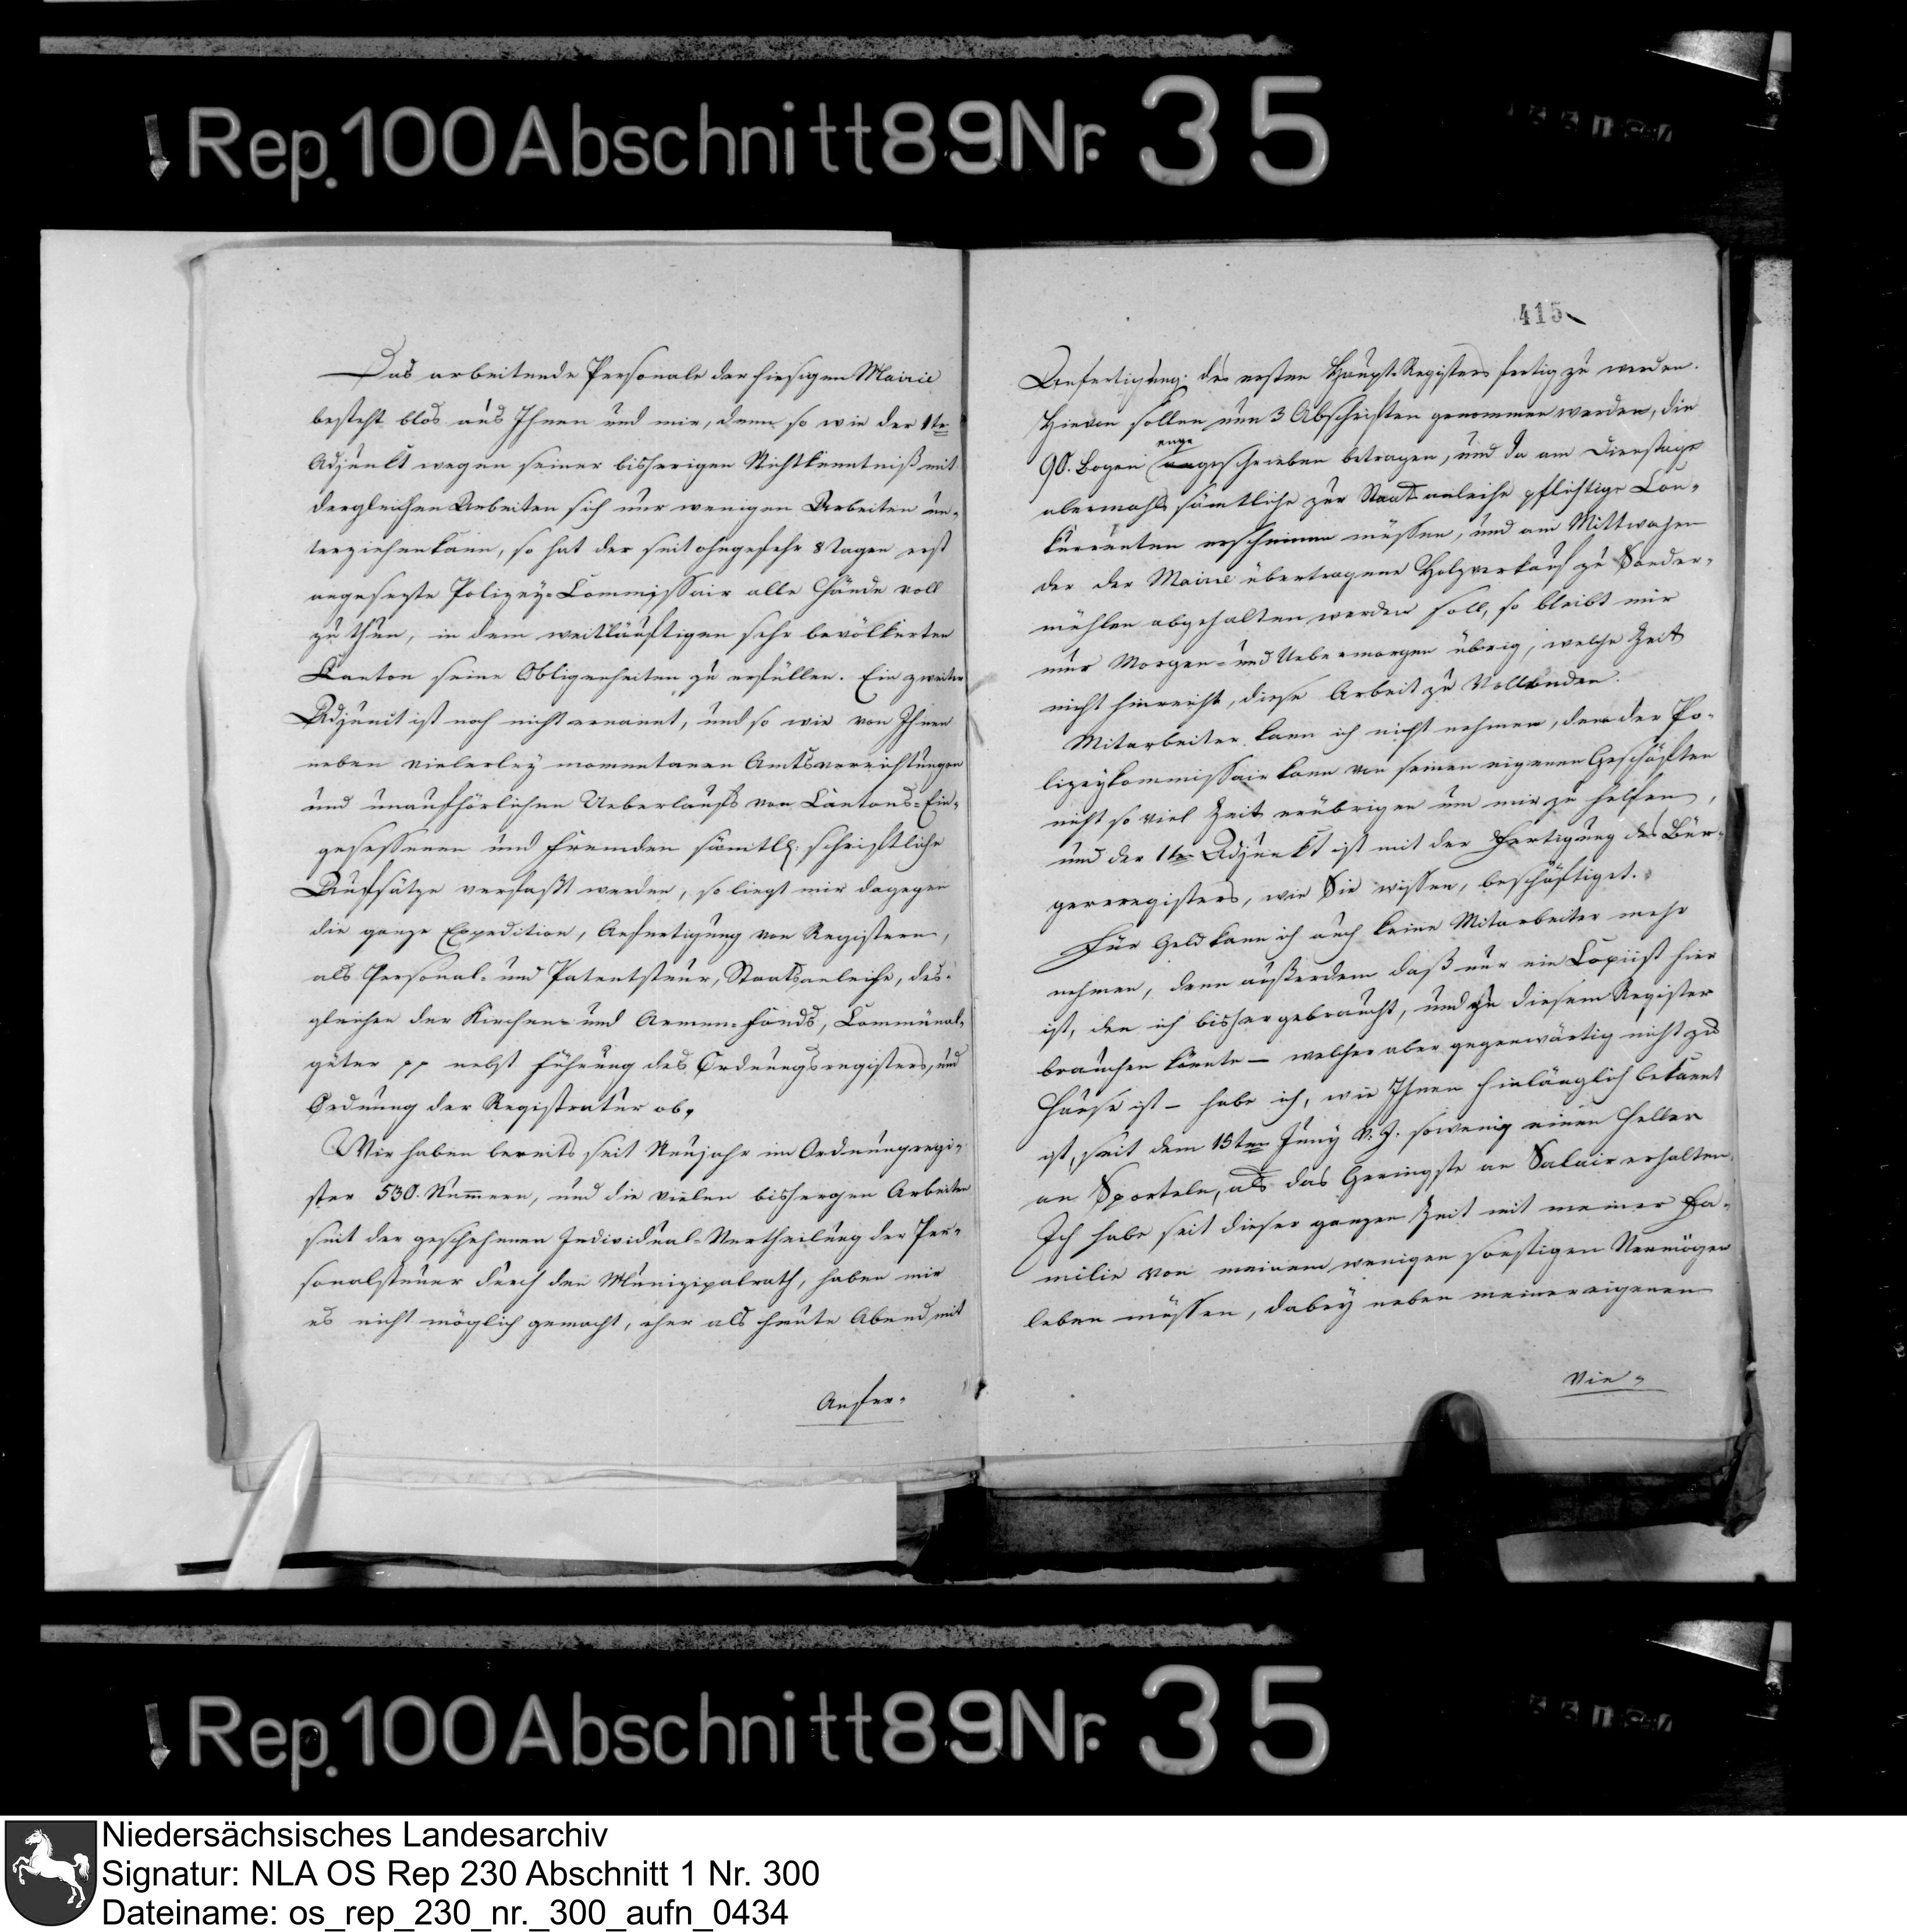 Rep. 100 Abschnitt 89 Nr. 35
Das arbeitende Personale der hiesigen Mairie
besteht blos aus Ihnen und mir, denn so wie der 1te
Adjunkt wegen seiner bisherigen Nichtkenntniß mit
dergleichen Arbeiten sich nur wenigen Arbeiten un-
terziehen kann, so hat der seit ohngefehr 8 Tagen erst
angesezte Polizey-Commissair alle Hände voll
zu thun, in dem weitläuftigen sehr bevölkerten
Canton seine Obligenheiten zu erfüllen. Ein zweiter
Adjunct ist noch nicht ernannt, und so wie von Ihnen
neben vielerley momentanen Amtsverrichtungen
und unaufhörlichen Ueberlaufs von Cantons-Ein-
gesessenen und Fremden sämtl. schriftliche
Aufsätze verfaßt werden, so liegt mir dagegen
die ganze Expedition, Anfertigung von Registern,
als Personal- und Patentsteur, Staatsanleihe, des-
gleichen der Kirchen- und Armen-Fonds, Communal-
güter pp nebst Führung des Ordnungsregisters, und
Ordnung der Registratur ob.
Wir haben bereits seit Neujahr im Ordnungsregi-
ster 530. Nummern, und die vielen bisherigen Arbeiten
seit der geschehenen Individual-Vertheilung der Per-
sonalsteuer durch den Munizipalrath, haben mir
es nicht möglich gemacht, eher als heute Abend mit
Anfer-
415
Anfertigung des ersten Haupt-Registers fertig zu werden.
Hievon sollen nun 3 Abschriften genommen werden, die
enge
90. Bogen geschrieben betragen, und da am Dienstage
abermahls sämtliche zur Staatsanleihe pflichtige Con-
kurrenten erscheinen müssen, und am Mittwochen
der der Mairie übertragene Holzverkauf zu Sonder-
mühlen abgehalten werden soll, so bleibt mir
nur Morgen- und Uebermorgen übrig, welche Zeit
nicht hinreicht, diese Arbeit zu Vollenden.
Mitarbeiter kann ich nicht nehmen, denn der Po-
lizeykommissair kann von seinen eigenen Geschäften
nicht so viel Zeit erübrigen um mir zu helfen,
und der 1te Adjunkt ist mit der Fertigung des Bür-
gerregisters, wie Sie wissen, beschäftiget.
Für Geld kann ich auch keine Mitarbeiter mehr
nehmen, denn außerdem daß nur ein Copiist hier
ist, den ich bisher gebraucht, und zu diesem Register
brauchen könnte – welcher aber gegenwärtig nicht zu
Hause ist – habe ich, wie Ihnen hinlänglich bekannt
ist, seit dem 15ten Juny v. J. sowenig einen Heller
an Sporteln, als das Geringste an Salair erhalten.
Ich habe seit dieser ganzen Zeit mit meiner Fa-
milie von meinem wenigen sonstigen Vermögen
leben müssen, dabey neben meiner eigenen
Vie-
Rep. 100 Abschnitt 89 Nr. 35
Niedersächsisches Landesarchiv
Signatur: NLA OS Rep 230 Abschnitt 1 Nr. 300
Dateiname: os_rep_230_nr._300_aufn_0434